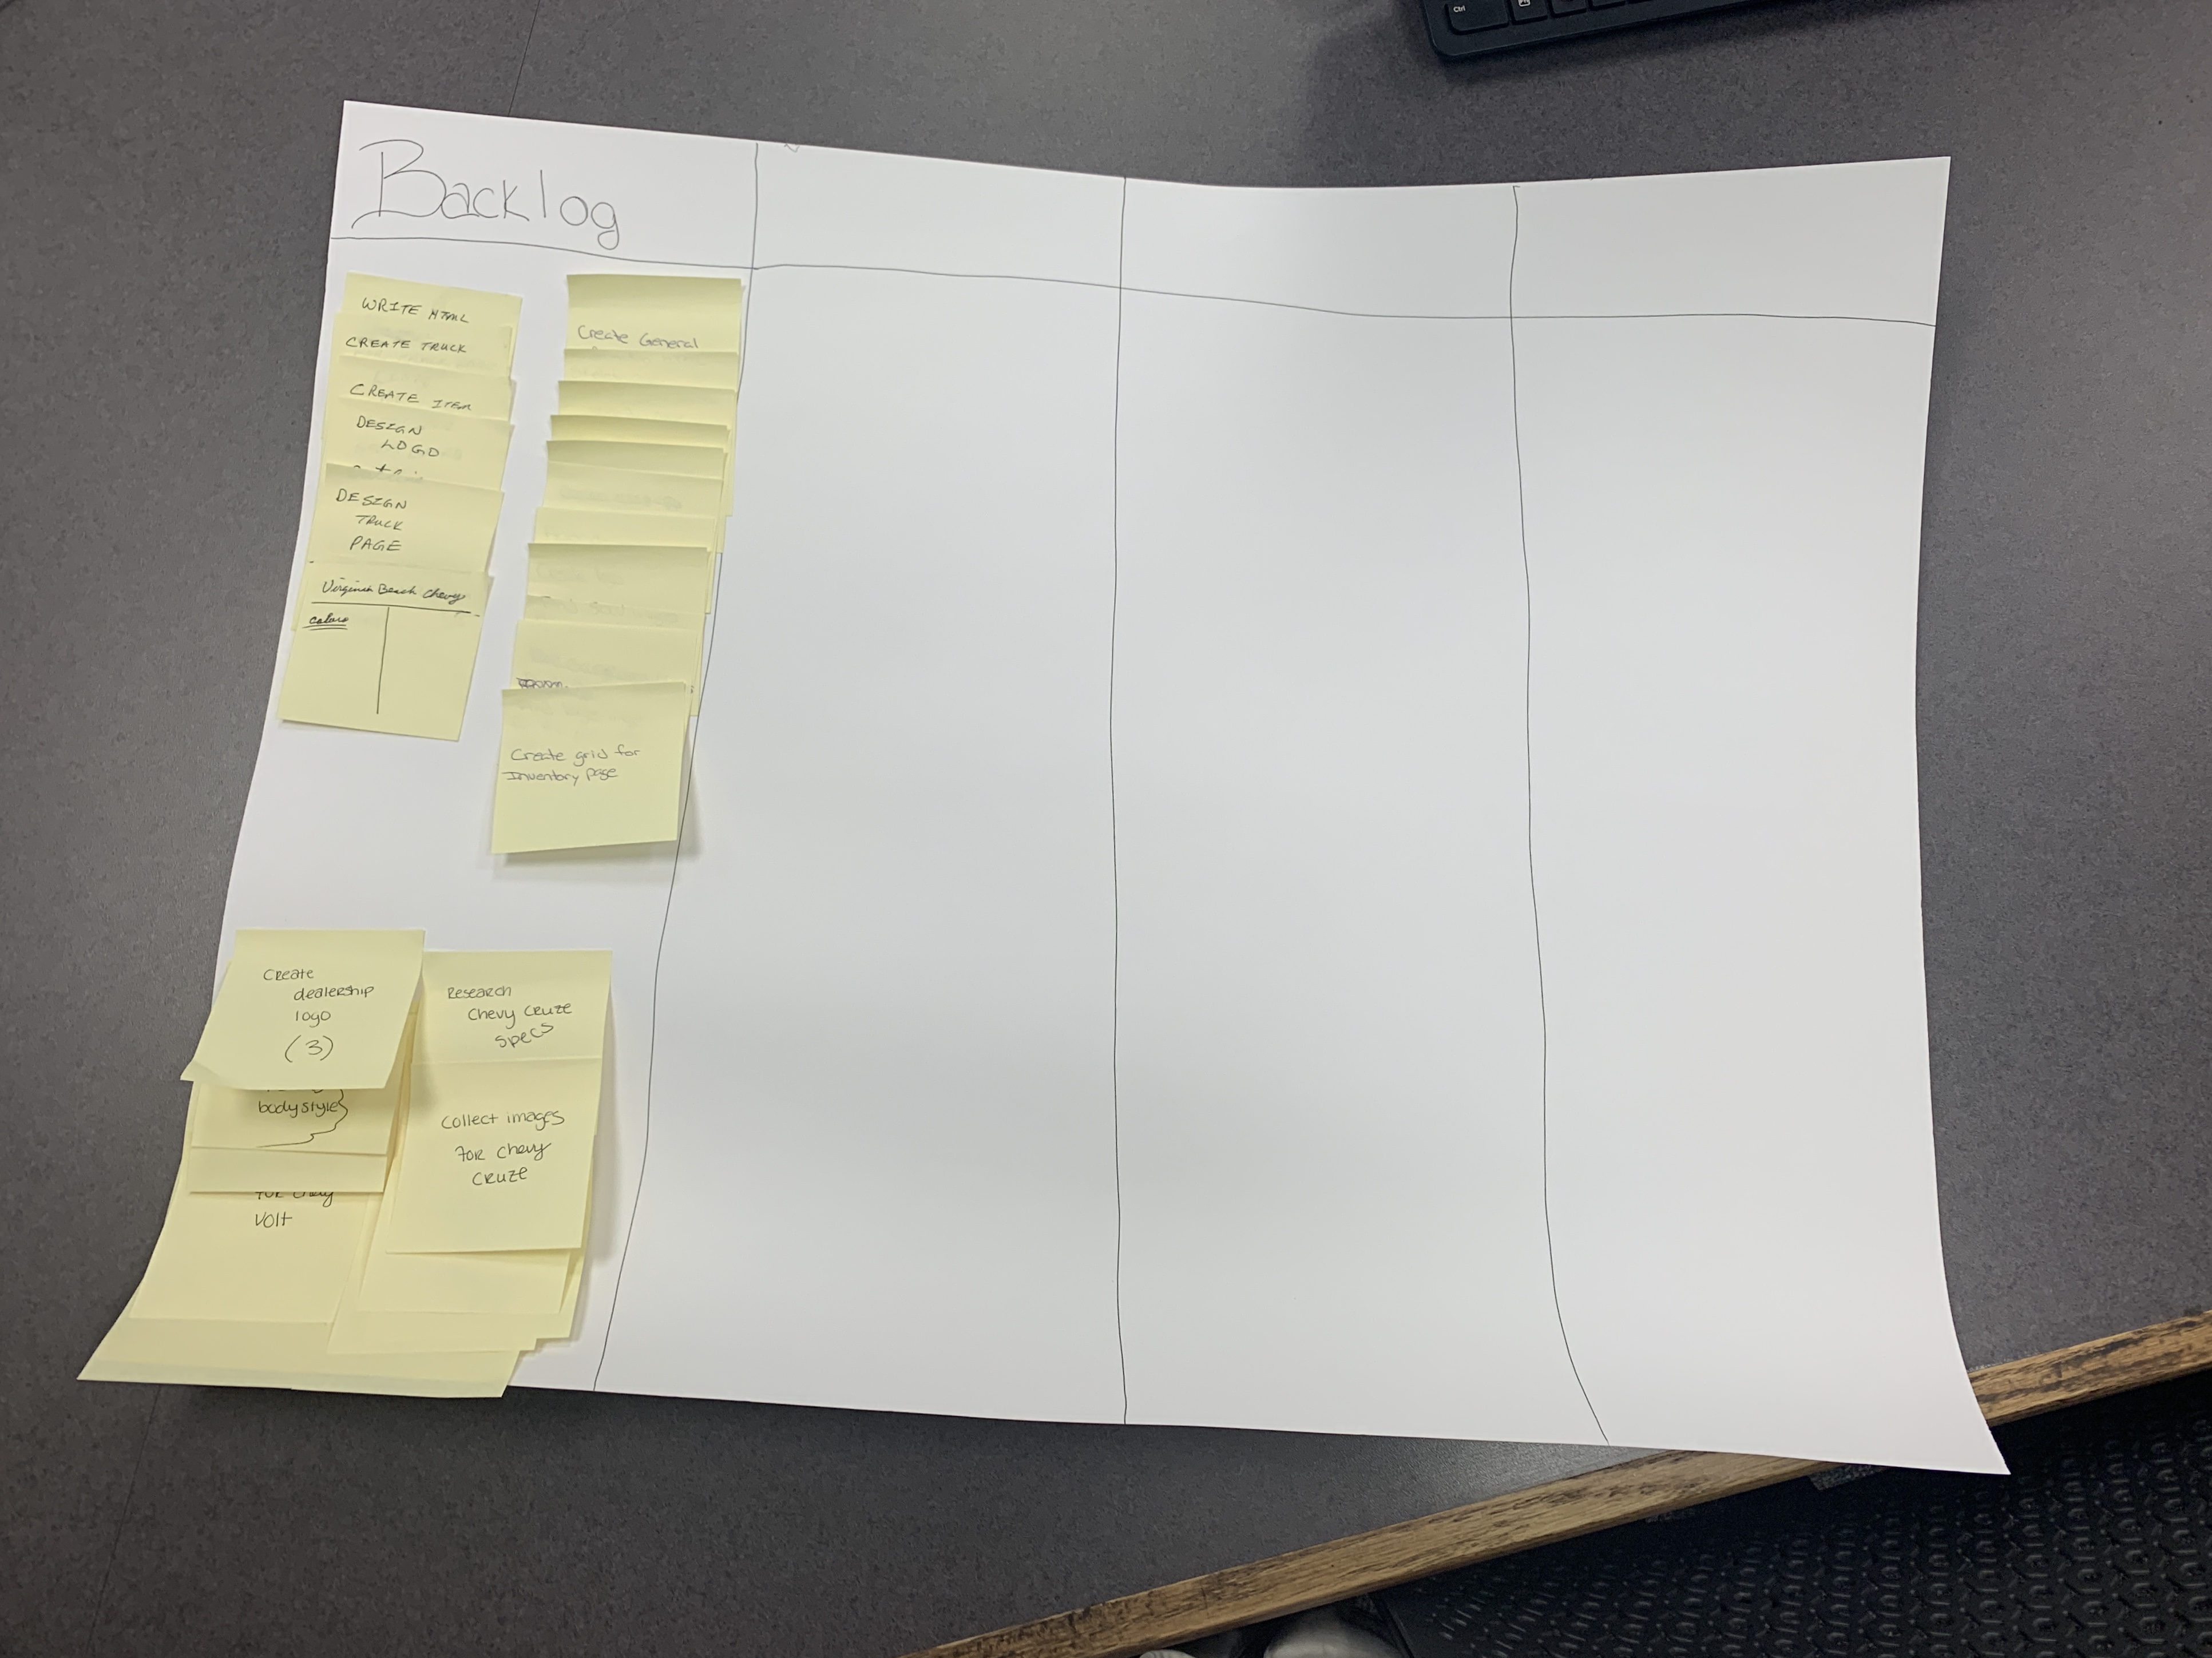 Backlog
WRITE HTML
CREATE TRUCK
CREATE ITEM
DESIGN
LOGO
DESIGN
TRUCK
PAGE
Virginia Beach Chevy
colors
Create General
Create grid for
Inventory page
Create
dealership
logo
(3)
body style
for chevy
Volt
Research
Chevy Cruze
specs
Collect images
for Chevy
Cruze
Ctrl